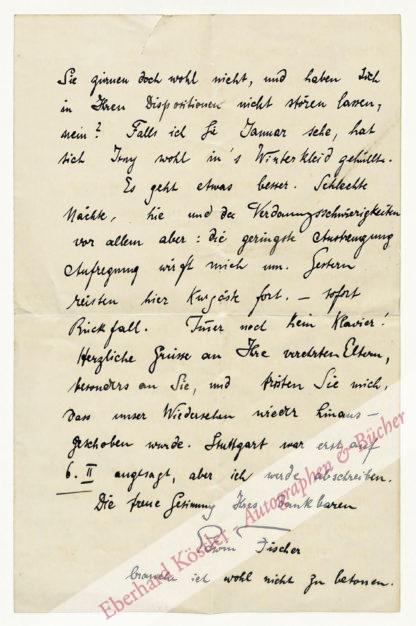 Sie zürnen doch wohl nicht, und haben Sich
in Ihren Dispositionen nicht stören lassen,
nein? Falls ich Sie Januar sehe, hat
sich Isny wohl in's Winterkleid gehüllt.
Es geht etwas besser. Schlechte
Nächte, hie und da Verdauungsschwierigkeiten
vor allem aber: die geringste Anstrengung
Aufregung wirft mich um. Gestern
reisten hier Kurgäste fort. – sofort
Rückfall. Immer noch kein Klavier!
Herzliche Grüsse an Ihre verehrten Eltern,
besonders an Sie, und trösten Sie mich,
dass unser Wiedersehen wieder hinaus-
geschoben wurde. Stuttgart war erst auf
6. II angesagt, aber ich werde abschreiben.
Die treue Gesinnung Ihres dankbaren
Edwin Fischer
brauche ich wohl nicht zu betonen.
Eberhard Köstler - Autographen & Bücher